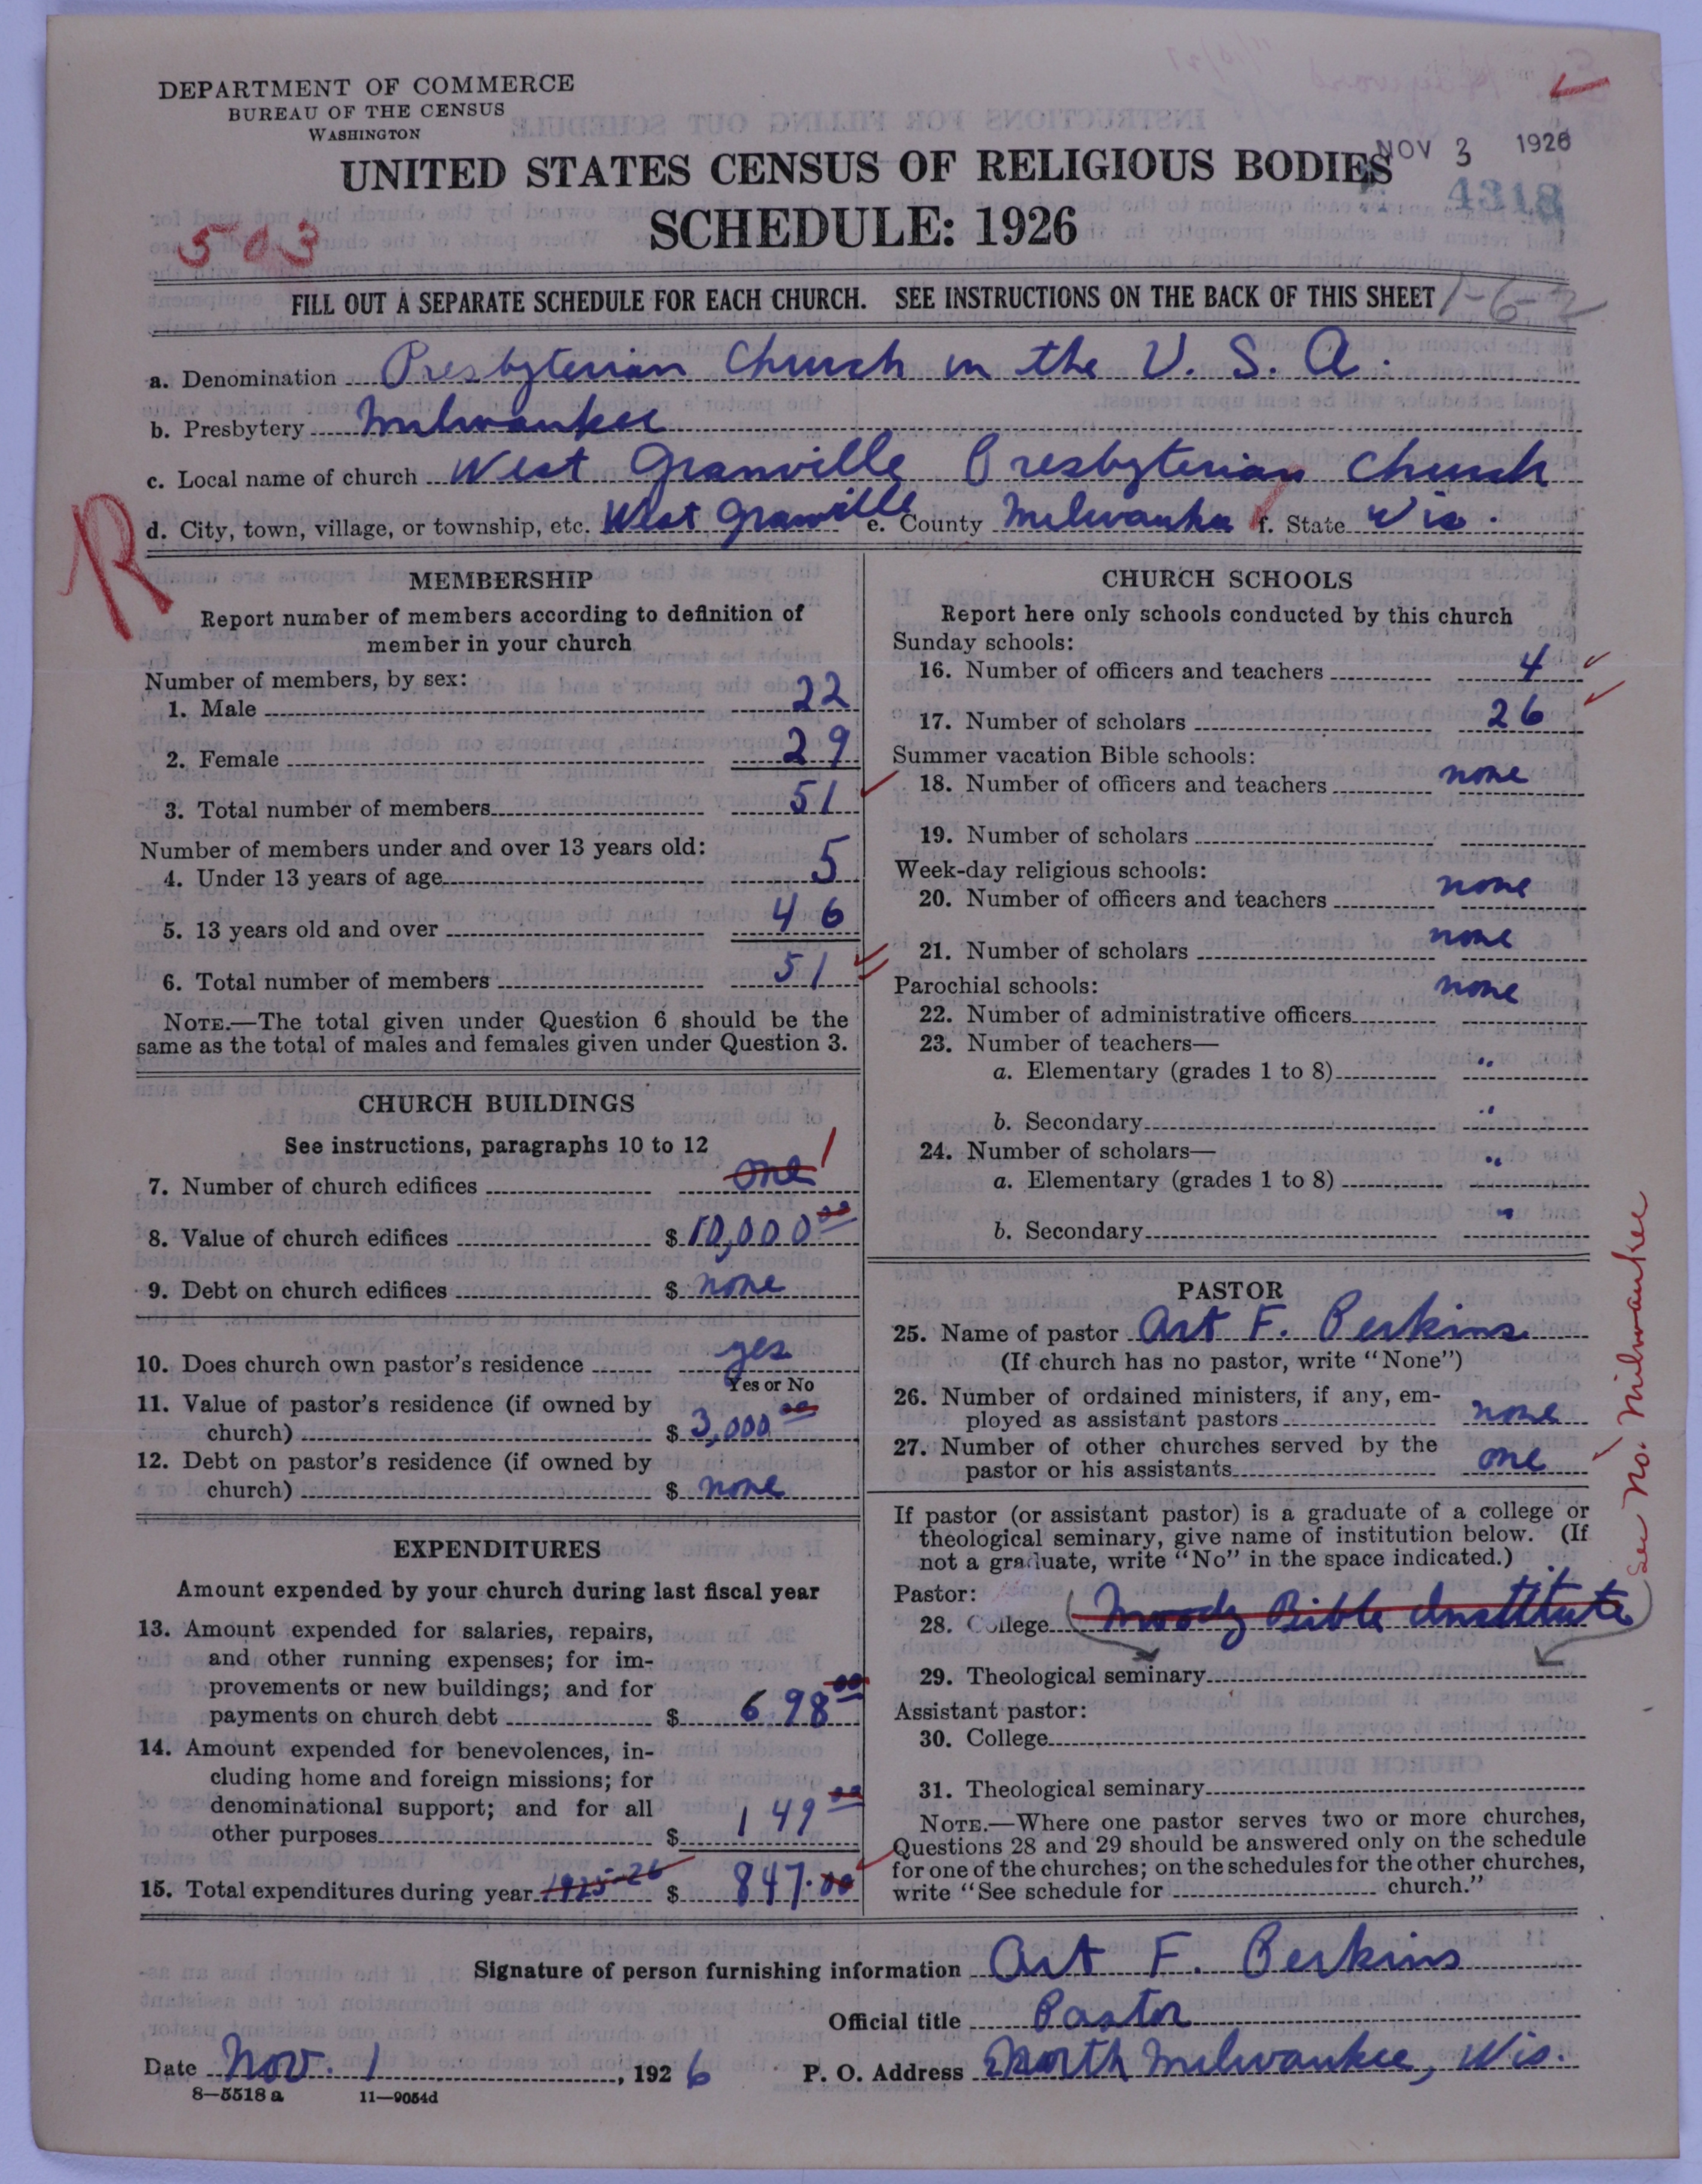 DEPARTMENT OF COMMERCE
BUREAU OF THE CENSUS
WASHINGTON
UNITED STATES CENSUS OF RELIGIOUS BODIES
NOV 3 1926
4318
SCHEDULE: 1926
503
FILL OUT A SEPARATE SCHEDULE FOR EACH CHURCH. SEE INSTRUCTIONS ON THE BACK OF THIS SHEET
1-6-2
a. Denomination Presbyterian Church in the U. S. A.
b. Presbytery Milwaukee
c. Local name of church West Granville Presbyterian Church
d. City, town, village, or township, etc. West Granville e. County Milwaukee f. State Wis.
R
MEMBERSHIP
Report number of members according to definition of
member in your church
Number of members, by sex:
1. Male 22
2. Female 29
3. Total number of members 51
Number of members under and over 13 years old:
4. Under 13 years of age 5
5. 13 years old and over 46
6. Total number of members 51
NOTE.—The total given under Question 6 should be the
same as the total of males and females given under Question 3.
CHURCH BUILDINGS
See instructions, paragraphs 10 to 12
7. Number of church edifices one 1
8. Value of church edifices $ 10,000 00
9. Debt on church edifices $ none
10. Does church own pastor's residence yes
Yes or No
11. Value of pastor's residence (if owned by
church) $ 3,000 00
12. Debt on pastor's residence (if owned by
church) $ none
EXPENDITURES
Amount expended by your church during last fiscal year
13. Amount expended for salaries, repairs,
and other running expenses; for im-
provements or new buildings; and for
payments on church debt $ 698 00
14. Amount expended for benevolences, in-
cluding home and foreign missions; for
denominational support; and for all
other purposes $ 149 00
15. Total expenditures during year 1925-26 $ 847.00
CHURCH SCHOOLS
Report here only schools conducted by this church
Sunday schools:
16. Number of officers and teachers 4
17. Number of scholars 26
Summer vacation Bible schools:
18. Number of officers and teachers none
19. Number of scholars
Week-day religious schools:
20. Number of officers and teachers none
21. Number of scholars none
Parochial schools: none
22. Number of administrative officers
23. Number of teachers—
a. Elementary (grades 1 to 8) "
b. Secondary "
24. Number of scholars—
a. Elementary (grades 1 to 8) "
b. Secondary "
PASTOR
25. Name of pastor Art F. Perkins
(If church has no pastor, write "None")
26. Number of ordained ministers, if any, em-
ployed as assistant pastors none
27. Number of other churches served by the
pastor or his assistants one
If pastor (or assistant pastor) is a graduate of a college or
theological seminary, give name of institution below. (If
not a graduate, write "No" in the space indicated.)
Pastor:
28. College Moody Bible Institute
29. Theological seminary
Assistant pastor:
30. College
31. Theological seminary
NOTE.—Where one pastor serves two or more churches,
Questions 28 and 29 should be answered only on the schedule
for one of the churches; on the schedules for the other churches,
write "See schedule for church."
See No. Milwaukee
Signature of person furnishing information Art F. Perkins
Official title Pastor
Date Nov. 1, 1926 P. O. Address North Milwaukee, Wis.
8—5518 a 11—9054d